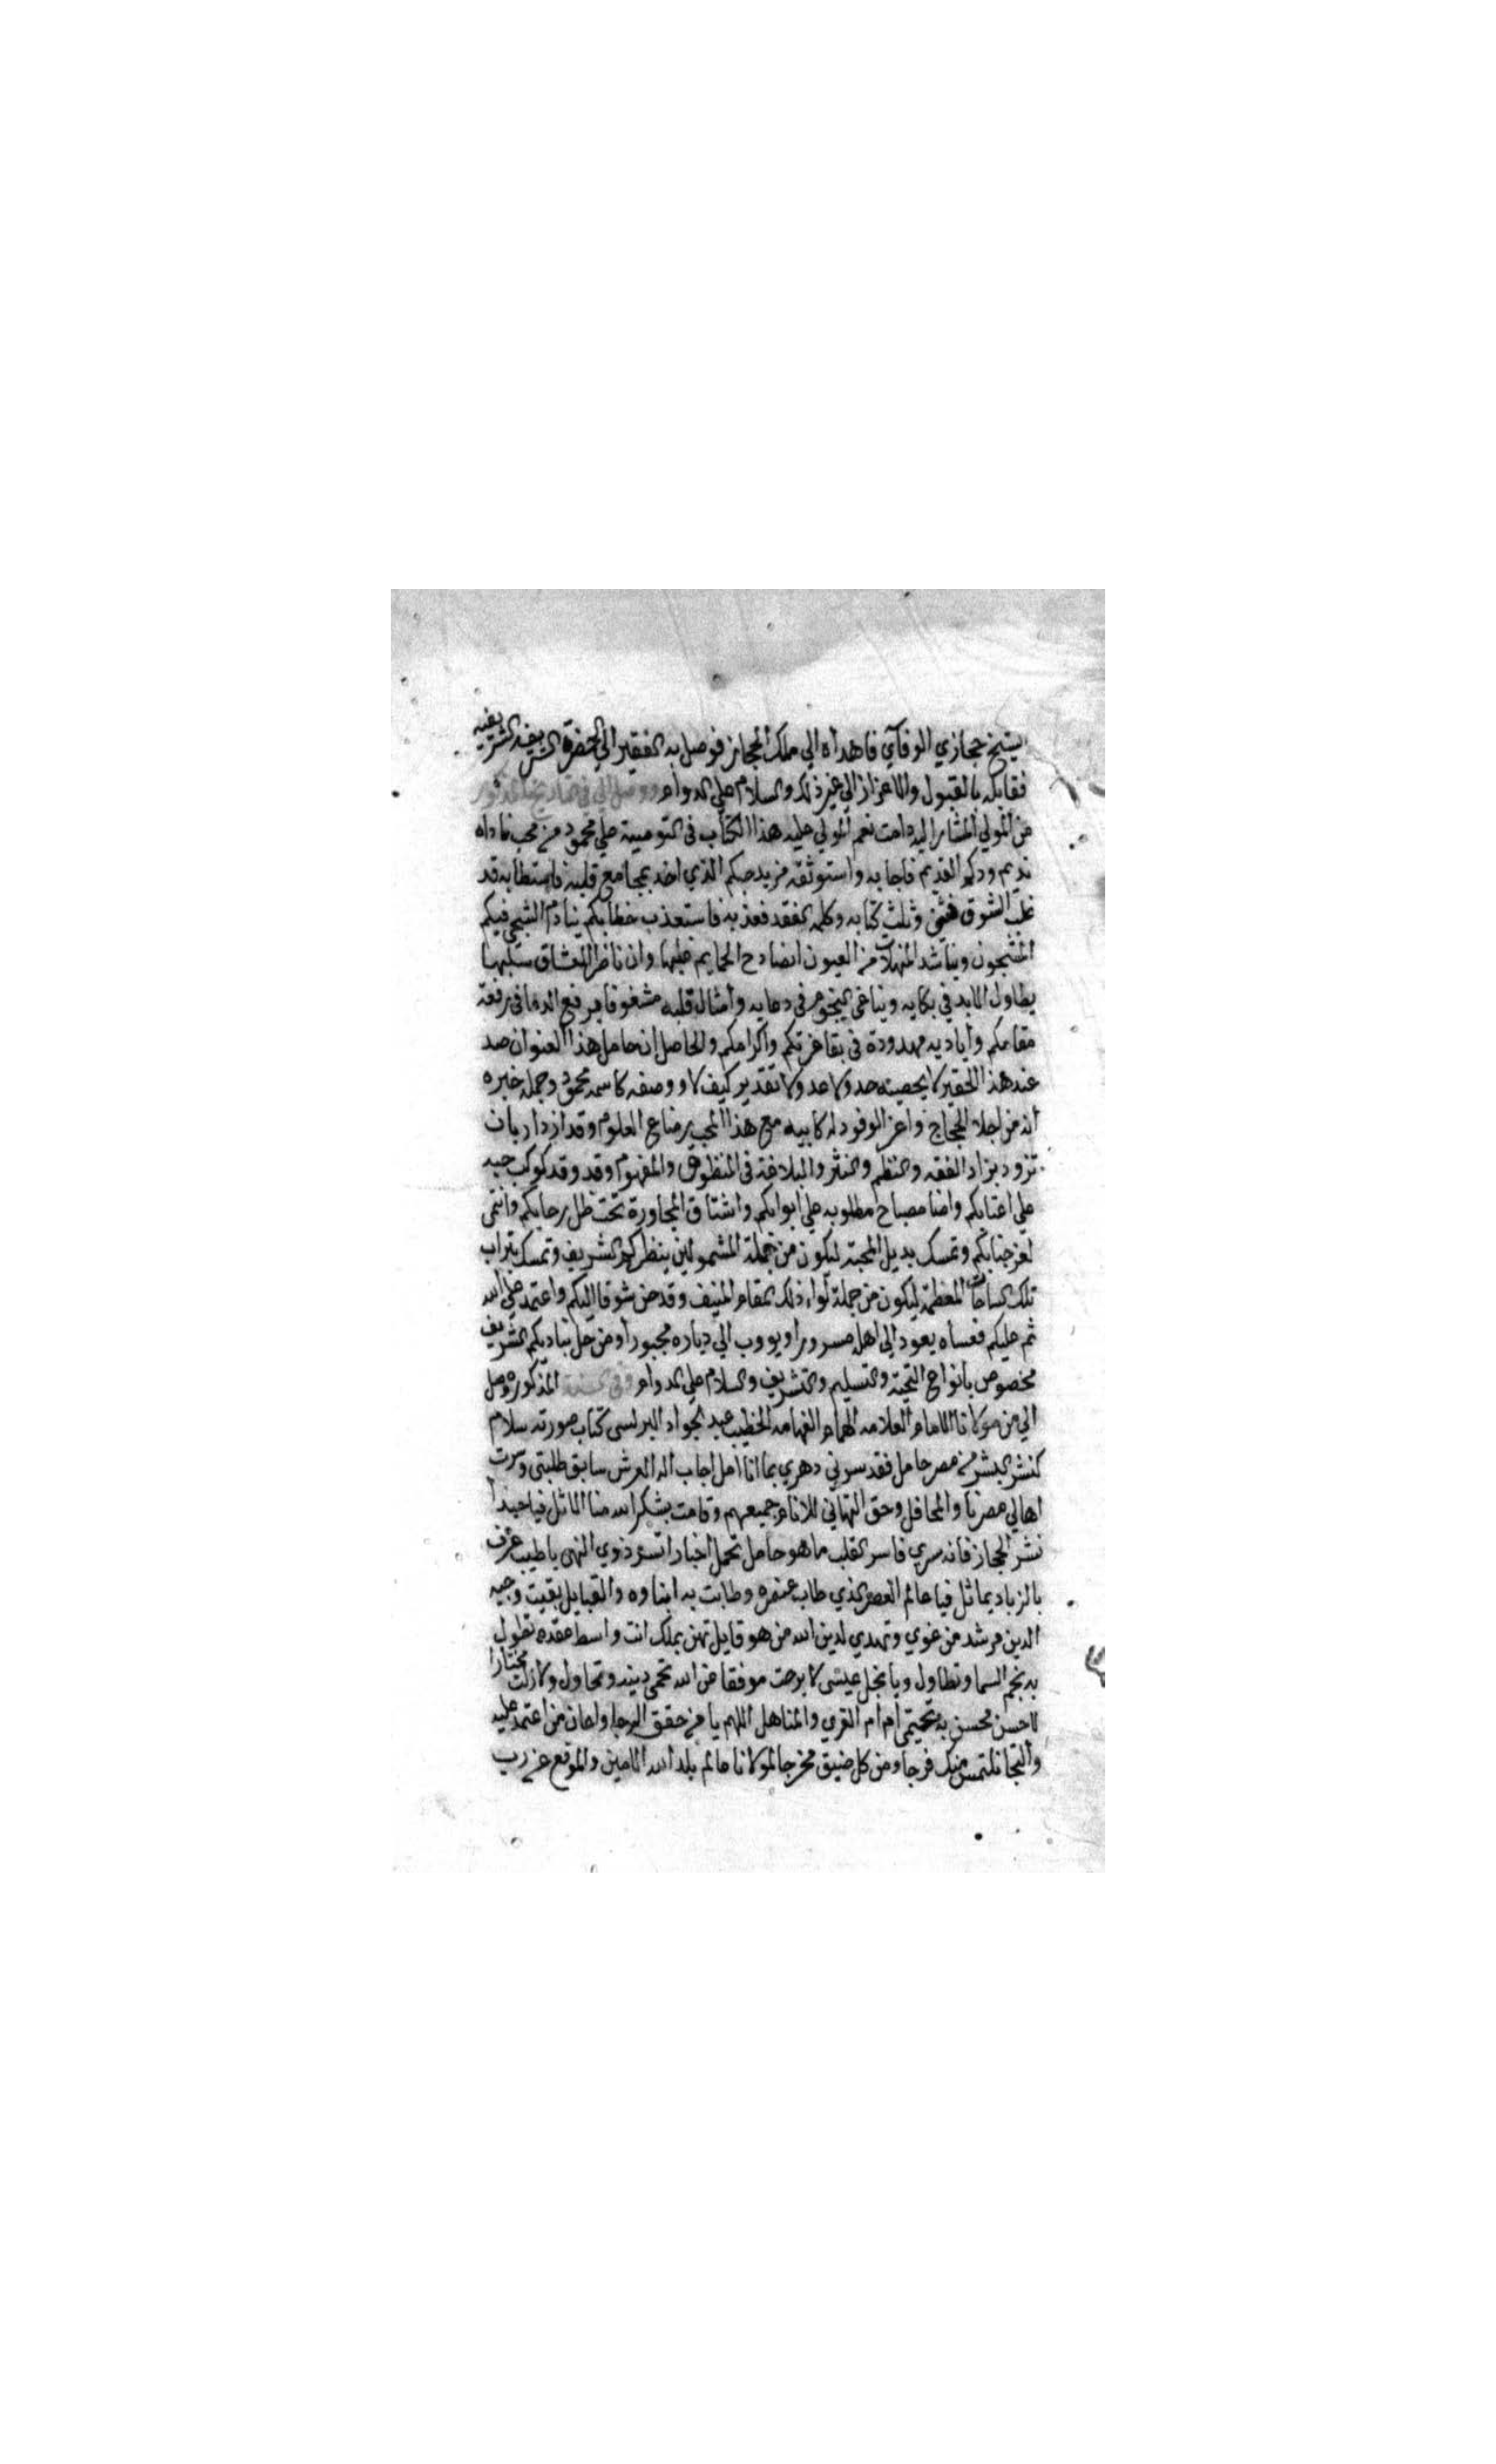 الشيخ حجازي الوفآي فاهداه الي ملك الحجاز فوصل به الفقير الي الحضرة الشريفية
فقابله بالقبول والاعزاز الي غير ذلك والسلام علي الدوام ووصل الي في التاريخ المذكور
من المولي المشار اليه دامت نعم المولي عليه هذا الكتاب في التوصية علي محمود من محب ناداه
نديم ودكم القديم فاجابه واستوثقه مزيد حبكم الذي اخذ بمجامع قلبه فاستطابه قد
غلب الشوق وثلث كتابه وكلمه الفقد فعذبه فاستعذب خطابكم ينادم الشجي فيكم
الشجون ويناشد المنهلات من العيون اذا صادح الحمايم عليها وان ناظر العشاق سلبها
يطاول الابد في بكايه ويناغي النجوم في دعايه وامثال قلبه مشغوفا برفع الدعا في رفعة
مقامكم واياديه ممدودة في بقا عزتكم واكرامكم والحاصل ان حامل هذا العنوان صد
عند هذا الحقير لا يحصيه حد ولا عد ولا تقدير كيف لا ووصفه كاسمه محمود وجملة خبره
انه من اجلا الحجاج واعز الوفود له كابيه مع هذا المحب رضاع العلوم وقد ازدار بان
تزود بزاد الفقه والنظم والنثر والبلاغة في المنطوق والمفهوم وقد وقد كوكب حبه
علي اعتابكم واضا مصباح مطلوبه علي ابوابكم واشتاق المجاورة تحت ظل رحابكم وانتمي
لعز جنابكم وتمسك بذيل المحبة ليكون من جملة المشمولين بنظركم الشريف وتمسك بتراب
تلك الساحات المعظمة ليكون من جملة لواء ذلك المقام المنيف وقد حن شوقا اليكم واعتمد علي الله
ثم عليكم فعساه يعود الي اهله مسرورا ويووب الي دياره مجبورا ومن حل بناديكم الشريف
مخصوص بانواع التحية والتسليم والتشريف والسلام علي الدوام وفي السنة المذكورة وصل
الي من مولانا الامام العلامه الهمام الفهامه الخطيب عبد الجواد البرلسي كتاب صورته سلام
كنشر البشر من مصر حامل فقد سرني دهري بما انا امل اجاب اله العرش سابق طلبتي وسرت
اهالي مصرنا والمحافل وحق التهاني للانام جميعهم وقامت بشكر الله منا الاماثل فيا حبذا
نشر الحجاز فانه سري فاسر القلب ما هو حامل تحمل اخبارا تسر ذوي النهي باطيب عرف
بالزباد يماثل فيا عالم العصر الذي طاب عنصره وطابت به ابناوه والقبايل بقيت وجيه
الدين مرشد من غوي وتهدي لدين الله من هو قايل تهن بملك انت واسط عقده تطول
به نجم السما وتطاول ويا نجل عيسي لا برحت موفقا عن الله تحمي دينه وتحاول ولا زلت مختارا
لاحسن محسن به تحتمي ام القري والمناهل اللهم يا من حقق الرجا واعان من اعتمد عليه
والتجا نلتمس منك فرجا ومن كل ضيق مخرجا لمولانا عالم بلد الله الامين والموقع عن رب